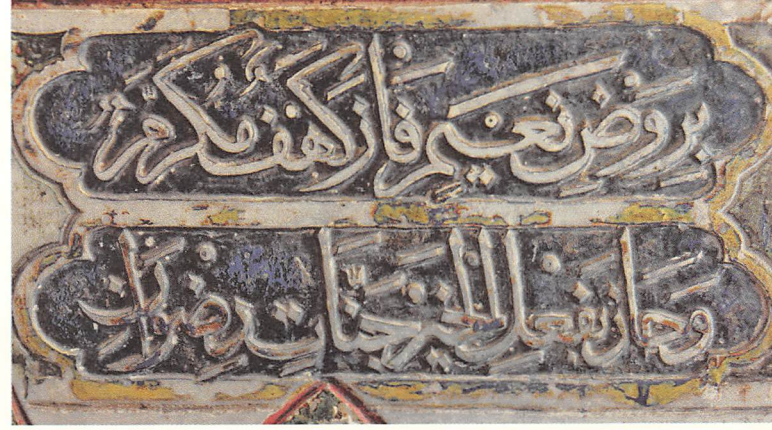 بروض نعيم فاز كهف مكرم
وحاز بفعل الخير جنات رضوان